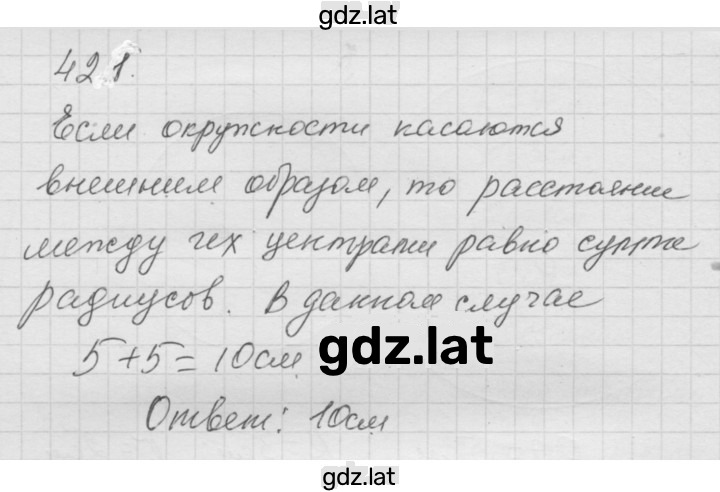 gdz.lat
421.
Если окружности касаются
внешним образом, то расстояние
между их центрами равно сумме
радиусов. В данном случае
5+5=10см
gdz.lat
Ответ: 10см
gdz.lat